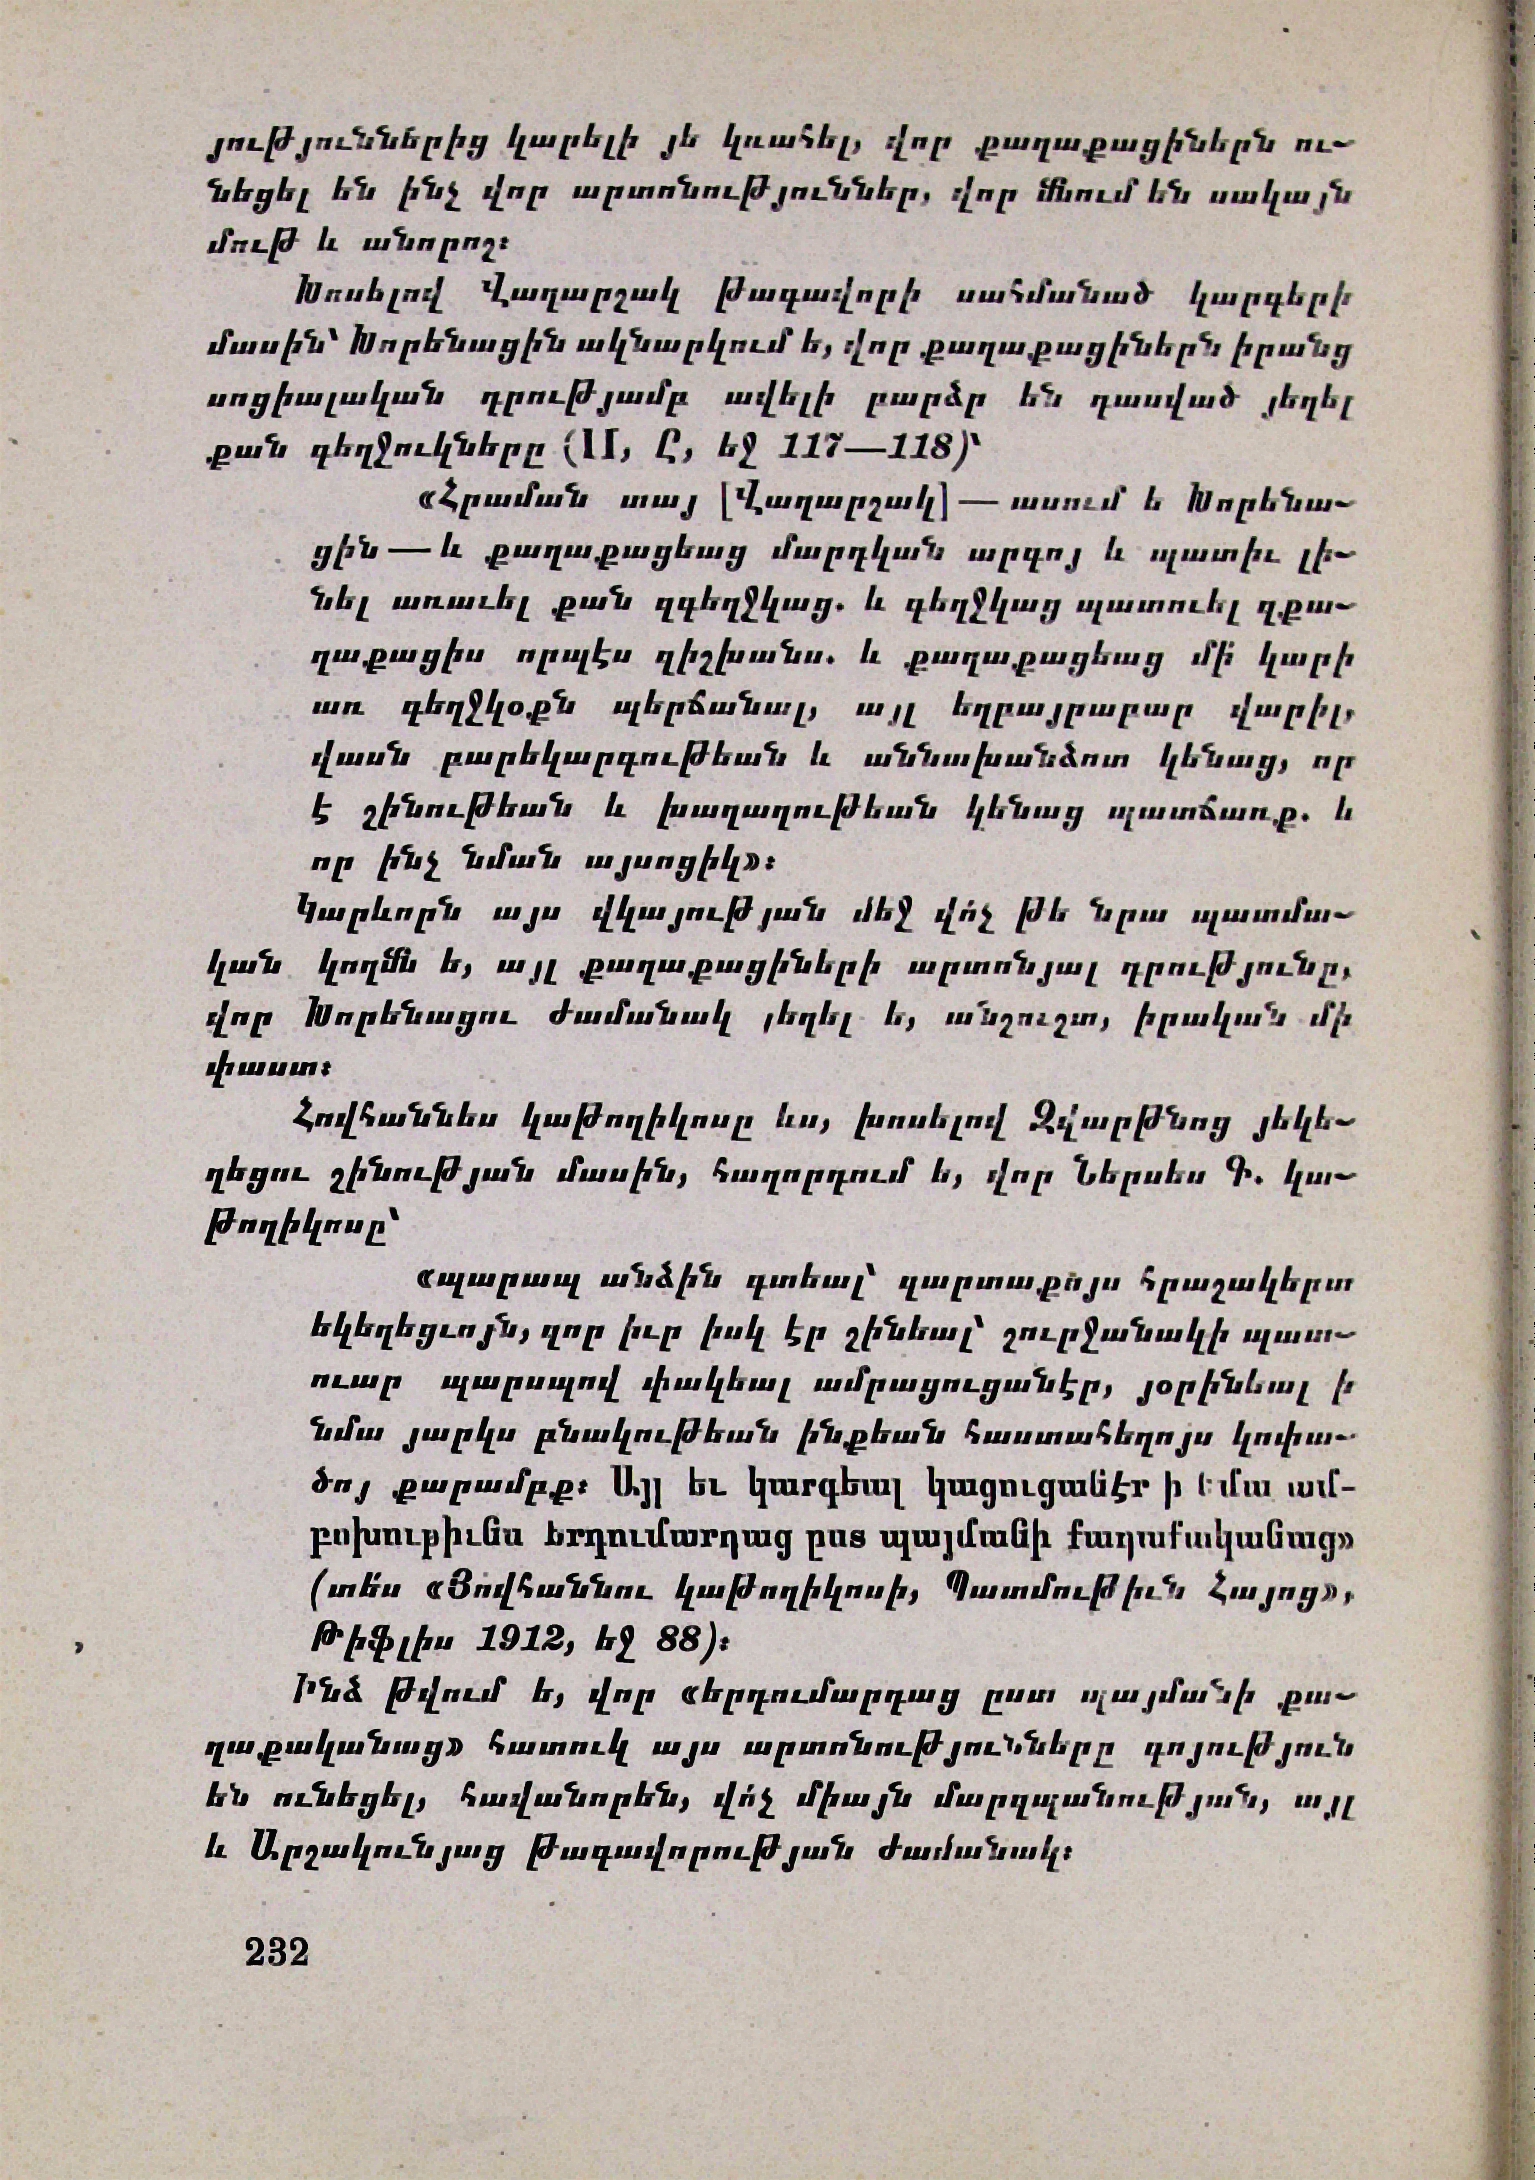 յություններից կարելի յե կռահել, վոր քաղաքացիներն ու-
նեցել են ինչ վոր արտոնություններ, վոր մնում են սակայն
մութ և անորոշ։
Խոսելով Վաղարշակ թագավորի սահմանած կարգերի
մասին՝ Խորենացին ակնարկում ե, վոր քաղաքացիներն իրանց
սոցիալական դրությամբ ավելի բարձր են դասված յեղել
քան գեղջուկները (II, Ը, եջ 117—118)՝
«Հրաման տայ [Վաղարշակ] — ասում ե Խորենա-
ցին — և քաղաքացեաց մարդկան արգոյ և պատիւ լի-
նել առաւել քան զգեղջկաց. և գեղջկաց պատուել զքա-
ղաքացիս որպէս զիշխանս. և քաղաքացեաց մի՛ կարի
առ գեղջկօքն պերճանալ, այլ եղբայրաբար վարիլ,
վասն բարեկարգութեան և աննախանձոտ կենաց, որ
է շինութեան և խաղաղութեան կենաց պատճառք. և
որ ինչ նման այսոցիկ»։
Կարևորն այս վկայության մեջ վո՛չ թե նրա պատմա-
կան կողմն ե, այլ քաղաքացիների արտոնյալ դրությունը,
վոր Խորենացու ժամանակ յեղել ե, անշուշտ, իրական մի
փաստ։
Հովհաննես կաթողիկոսը ևս, խոսելով Զվարթնոց յեկե-
ղեցու շինության մասին, հաղորդում ե, վոր Ներսես Գ. կա-
թողիկոսը՝
«պարապ անձին գտեալ՝ զարտաքոյս հրաշակերտ
եկեղեցւոյն, զոր իւր իսկ էր շինեալ՝ շուրջանակի պատ-
ուար պարսպով փակեալ ամրացուցանէր, յօրինեալ ի
նմա յարկս բնակութեան ինքեան հաստահեղոյս կոփա-
ծոյ քարամբք։ Այլ եւ կարգեալ կացուցանէր ի նմա ամ-
բոխութիւնս երդումարդաց ըստ պայմանի քաղաքականաց»
(տե՛ս «Յովհաննու կաթողիկոսի, Պատմութիւն Հայոց»,
Թիֆլիս 1912, եջ 88)։
Ինձ թվում ե, վոր «երդումարդաց ըստ պայմանի քա-
ղաքականաց» հատուկ այս արտոնությունները գոյություն
են ունեցել, հավանորեն, վո՛չ միայն մարզպանության, այլ
և Արշակունյաց թագավորության ժամանակ։
232